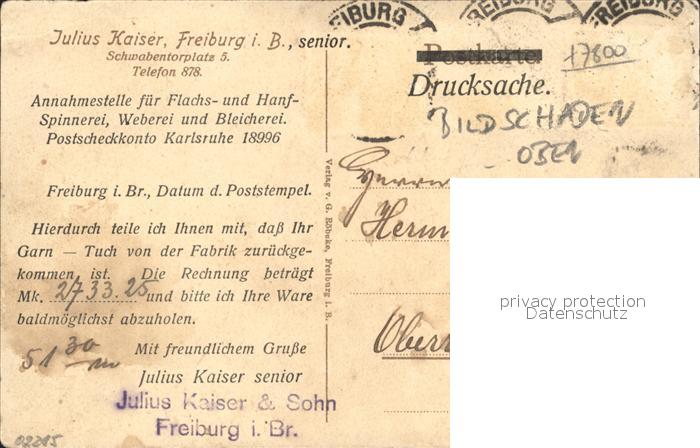 FREIBURG
FREIBURG
FREIBURG
Julius Kaiser, Freiburg i. B., senior.
Schwabentorplatz 5.
Telefon 878.
Annahmestelle für Flachs- und Hanf-
Spinnerei, Weberei und Bleicherei.
Postscheckkonto Karlsruhe 18996
Freiburg i. Br., Datum d. Poststempel.
Hierdurch teile ich Ihnen mit, daß Ihr
Garn — Tuch von der Fabrik zurückge-
kommen ist. Die Rechnung beträgt
Mk. 2733.25 und bitte ich Ihre Ware
baldmöglichst abzuholen.
51 30 m
Mit freundlichem Gruße
Julius Kaiser senior
Julius Kaiser & Sohn
Freiburg i. Br.
02215
Verlag v. G. Röbcke, Freiburg i. B.
Postkarte
17800
Drucksache.
BILDSCHADEN
OBEN
Herrn
Herm
Ober
privacy protection
Datenschutz